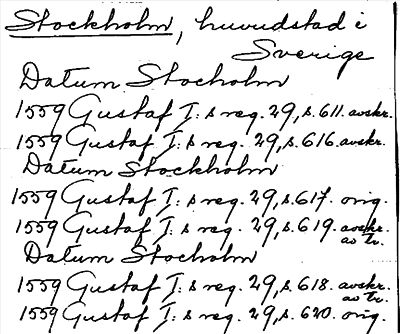 Stockholm, huvudstad i
Sverige
Datum Stocholm
1559 Gustaf I: s reg. 29, s. 611. avskr.
1559 Gustaf I: s reg. 29, s. 616. avskr.
Datum Stockholm
1559 Gustaf I: s reg. 29, s. 617. orig.
1559 Gustaf I: s reg. 29, s. 619. avskr.
av tr.
Datum Stocholm
1559 Gustaf I: s reg. 29, s. 618. avskr.
av tr.
1559 Gustaf I: s reg. 29, s. 620. orig.